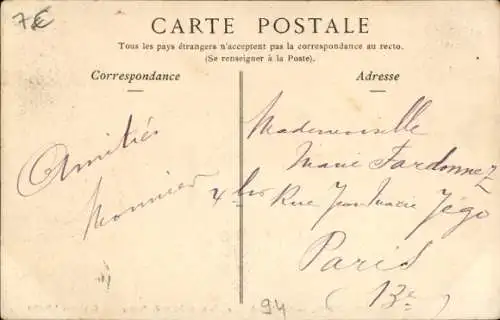 7€
CARTE POSTALE
Tous les pays étrangers n'acceptent pas la correspondance au recto.
(Se renseigner à la Poste).
Correspondance
Adresse
Amitiés
Monnier
Mademoiselle
Marie Fardonnez
4 bis Rue Jean Marie Jégo
Paris
(13e)
94